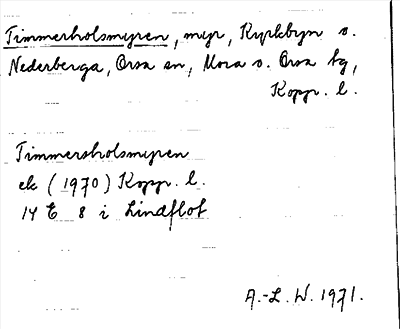 Timmerholsmyren, myr, Kyrkbyn o.
Nederberga, Orsa sn, Mora o. Orsa tg,
Kopp. l.
Timmersholsmyren
ek (1970) Kopp. l.
14 E 8 i Lindflot
A.-L. W. 1971.